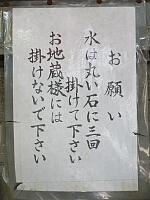 お願い
水は丸い石に三回
掛けて下さい
お地蔵様には
掛けないで下さい